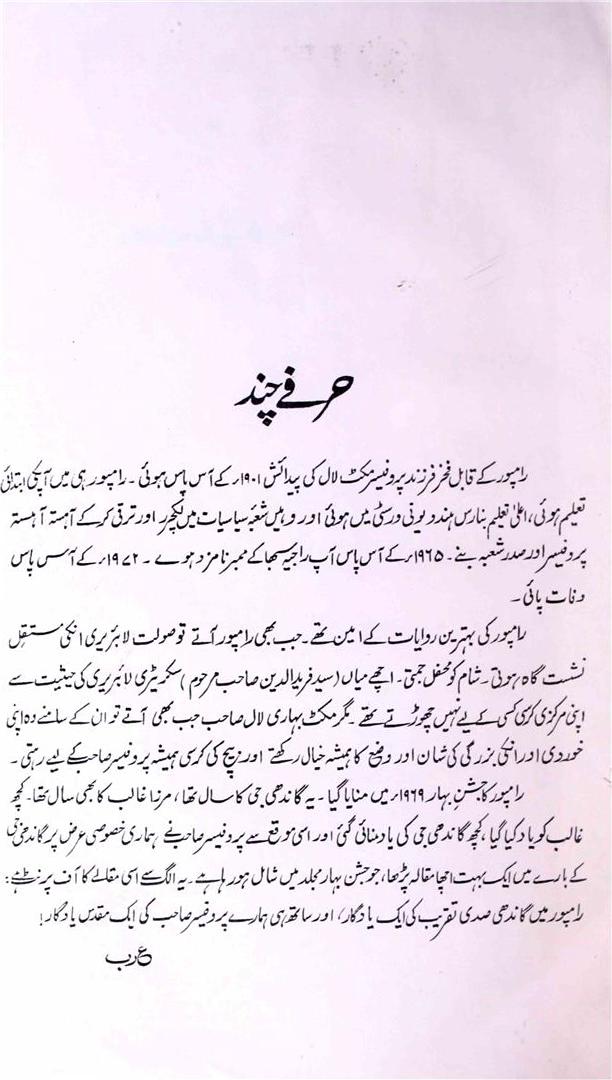 حرفے چند
رامپور کے قابل فخر فرزند پروفیسر مکٹ لال کی پیدائش ۱۹۰۱ء کے آس پاس ہوئی ۔ رامپور ہی میں آپکی ابتدائی
تعلیم ہوئی، اعلیٰ تعلیم بنارس ہندو یونی ورسٹی میں ہوئی اور وہیں شعبۂ سیاسیات میں لیکچرر اور ترقی کر کے آہستہ آہستہ
پروفیسر اور صدر شعبہ بنے ۔ ۱۹۶۵ء کے آس پاس آپ راجیہ سبھا کے ممبر نامزد ہوے ۔ ۱۹۷۲ء کے آس پاس
وفات پائی ۔
رامپور کی بہترین روایات کے امین تھے ۔ جب بھی رامپور آتے تو صولت لائبریری انکی مستقل
نشست گاہ ہوتی ۔ شام کو محفل جمتی ۔ اچھے میاں (سید فرید الدین صاحب مرحوم) سکریٹری لائبریری کی حیثیت سے
اپنی مرکزی کرسی کسی کے لیے نہیں چھوڑتے تھے ۔ مگر مکٹ بہاری لال صاحب جب بھی آتے تو ان کے سامنے وہ اپنی
خوردی اور انکی بزرگی کی شان اور وضع کا ہمیشہ خیال رکھتے اور بیچ کی کرسی ہمیشہ پروفیسر صاحب کے لیے رہتی ۔
رامپور کا جشنِ بہار ۱۹۶۹ء میں منایا گیا ۔ یہ گاندھی جی کا سال تھا، مرزا غالب کا بھی سال تھا ۔ کچھ
غالب کو یاد کیا گیا، کچھ گاندھی جی کی یاد منائی گئی اور اسی موقع سے پروفیسر صاحب نے ہماری خصوصی عرض پر گاندھی جی
کے بارے میں ایک بہت اچھا مقالہ پڑھا، جو جشن بہار مجلد میں شامل ہو رہا ہے ۔ یہ الگ سے اسی مقالے کا آف پرنٹ ہے :
رامپور میں گاندھی صدی تقریب کی ایک یادگار، اور ساتھ ہی ہمارے پروفیسر صاحب کی ایک مقدس یادگار !
ع ر ب